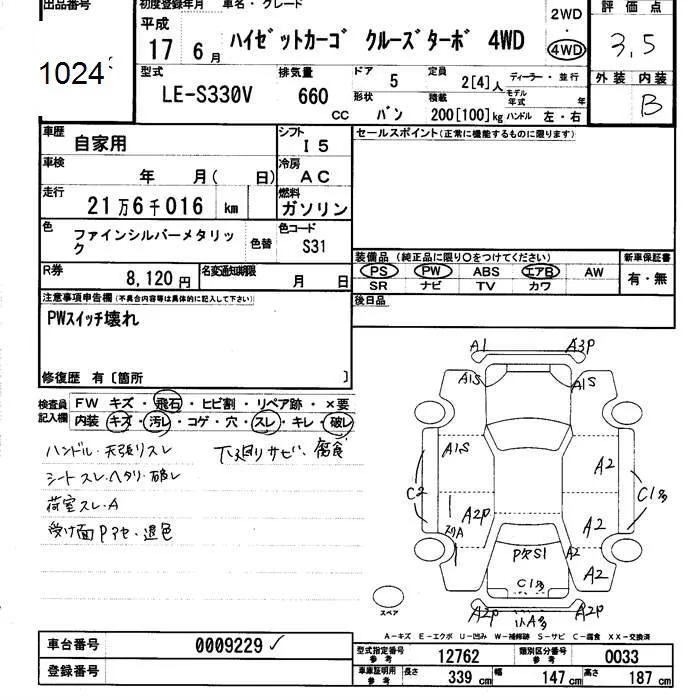 出品番号
1024
初度登録年月
車名・グレード
平成
17 6月
ハイゼットカーゴ クルーズターボ 4WD
2WD
4WD
評価点
3.5
型式
LE-S330V
排気量
660 CC
ドア 5
定員 2[4]人
ディーラー・並行
形状 バン
積載 200[100]kg
モデル年式 年
ハンドル 左・右
外装 内装
B
車歴 自家用
シフト I5
セールスポイント(正常に機能するものに限ります)
車検 年 月( 日)
冷房 AC
走行 21万6千016 km
燃料 ガソリン
色 ファインシルバーメタリック
色替
色コード S31
R券 8,120円
名変通知期限 月 日
装備品(純正品に限り○をつけてください)
新車保証書
PS PW ABS エアB AW
SR ナビ TV カワ
有・無
後日品
注意事項申告欄(不具合内容等は具体的に記入して下さい)
PWスイッチ壊れ
修復歴 有〔箇所 〕
検査員記入欄
FW キズ・飛石・ヒビ割・リペア跡・×要
内装 キズ・汚レ・コゲ・穴・スレ・キレ・破レ
ハンドル・天張りスレ
下廻りサビ、腐食
シートスレ・ヘタリ・破レ
荷室スレ・A
受け面Pアセ・退色
A1 A3P
A1S A1S
A1S A2
C2 C1多
A2P A2
P欠S1 A2
C1多 A2
A2P A2P
スペア
A-キズ E-エクボ U-凹み W-補修跡 S-サビ C-腐食 XX-交換済
車台番号 0009229
登録番号
型式指定番号 参考 12762
類別区分番号 参考 0033
車庫証明用 参考 長さ 339 cm 幅 147 cm 高さ 187 cm